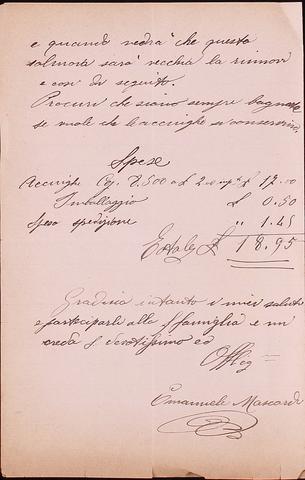 e quando vedrà che questa
salmora sarà vecchia la rinnovi
e così di seguito.
Procuri che siano sempre bagnate
se vuole che le acciughe si conservino,
Spese
Acciughe Cg. 8.500 a £ 2 £ 17.00
Imballaggio £ 0.50
Spese spedizione " 1.45
£ 18.95
Gradisca intanto i miei saluti
e parteciparli alla famiglia e mi
creda devotissimo ed
Obblg
Emanuele Mascardi